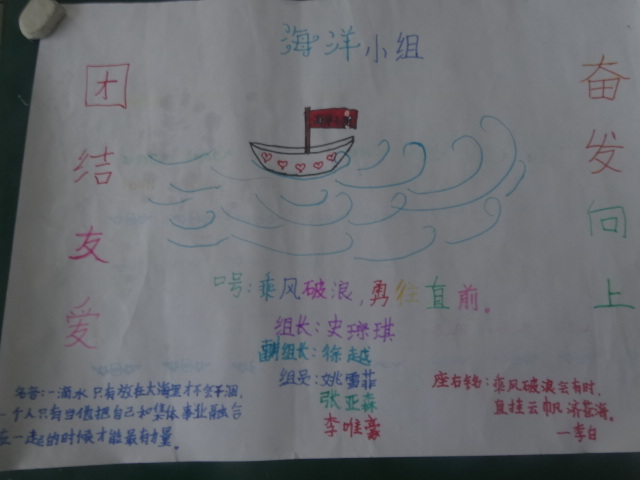 海洋小组
团结友爱
奋发向上
口号:乘风破浪,勇往直前。
组长:史琛琪
副组长:徐越
组员:姚雪菲
张亚森
李唯豪
名言:一滴水只有放在大海里才不会干涸,
一个人只有当他把自己和集体事业融合
在一起的时候才能最有力量。
座右铭:乘风破浪会有时,
直挂云帆济沧海。
—李白